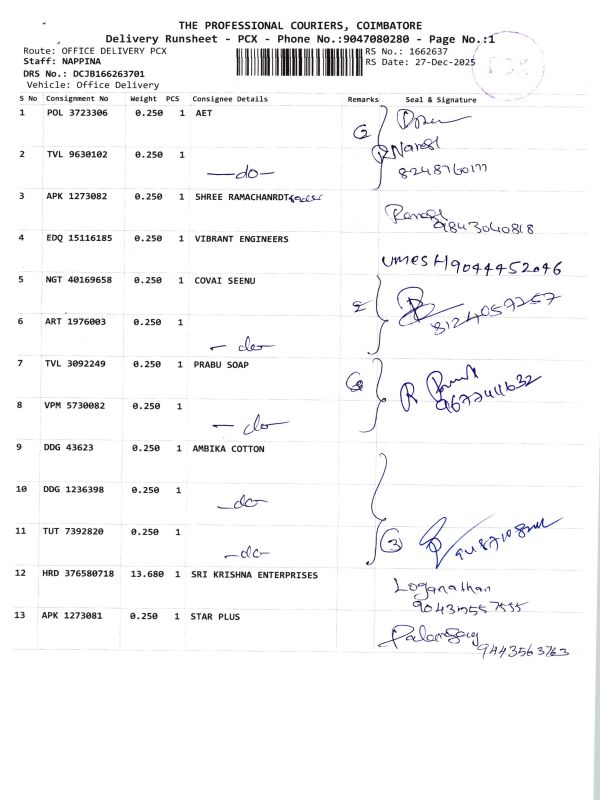 THE PROFESSIONAL COURIERS, COIMBATORE
Delivery Runsheet - PCX - Phone No.:9047080280 - Page No.:1
Route: OFFICE DELIVERY PCX
RS No.: 1662637
Staff: NAPPINA
RS Date: 27-Dec-2025
DRS No.: DCJB166263701
Vehicle: Office Delivery
PCX
S No Consignment No Weight PCS Consignee Details Remarks Seal & Signature
1 POL 3723306 0.250 1 AET
2 TVL 9630102 0.250 1 -do- Naresh
3 APK 1273082 0.250 1 SHREE RAMACHANRDT
Ramesh 9843040818
4 EDQ 15116185 0.250 1 VIBRANT ENGINEERS
UMESH 9044452046
5 NGT 40169658 0.250 1 COVAI SEENU 2
8124057257
6 ART 1976003 0.250 1 -do-
7 TVL 3092249 0.250 1 PRABU SOAP
9677411632
8 VPM 5730082 0.250 1 -do-
9 DDG 43623 0.250 1 AMBIKA COTTON
10 DDG 1236398 0.250 1 -do-
11 TUT 7392820 0.250 1 -do- 3
12 HRD 376580718 13.680 1 SRI KRISHNA ENTERPRISES
Loganathan
13 APK 1273081 0.250 1 STAR PLUS
9443563763